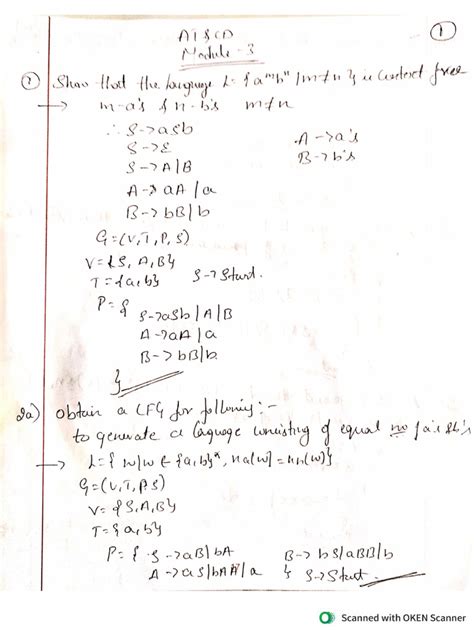 ①
AI&CD
Module - 3
① Show that the language L = {aᵐbⁿ | m≠n} is context free
→ m-a's & n-b's m≠n
∴ S→aSb
S→ε
S→A|B
A→aA|a
B→bB|b
A→a's
B→b's
G=(V,T,P,S)
V={S,A,B}
T={a,b} S→Start.
P={ S→aSb|A|B
A→aA|a
B→bB|b
}
2a) obtain a CFG for following:-
to generate a laguage consisting of equal no of a's & b's
→ L={w|w∈{a,b}*, na(w)=nb(w)}
G=(V,T,P,S)
V={S,A,B}
T={a,b}
P={ S→aB|bA B→bS|aBB|b
A→aS|bAA|a } S→Start.
Scanned with OKEN Scanner